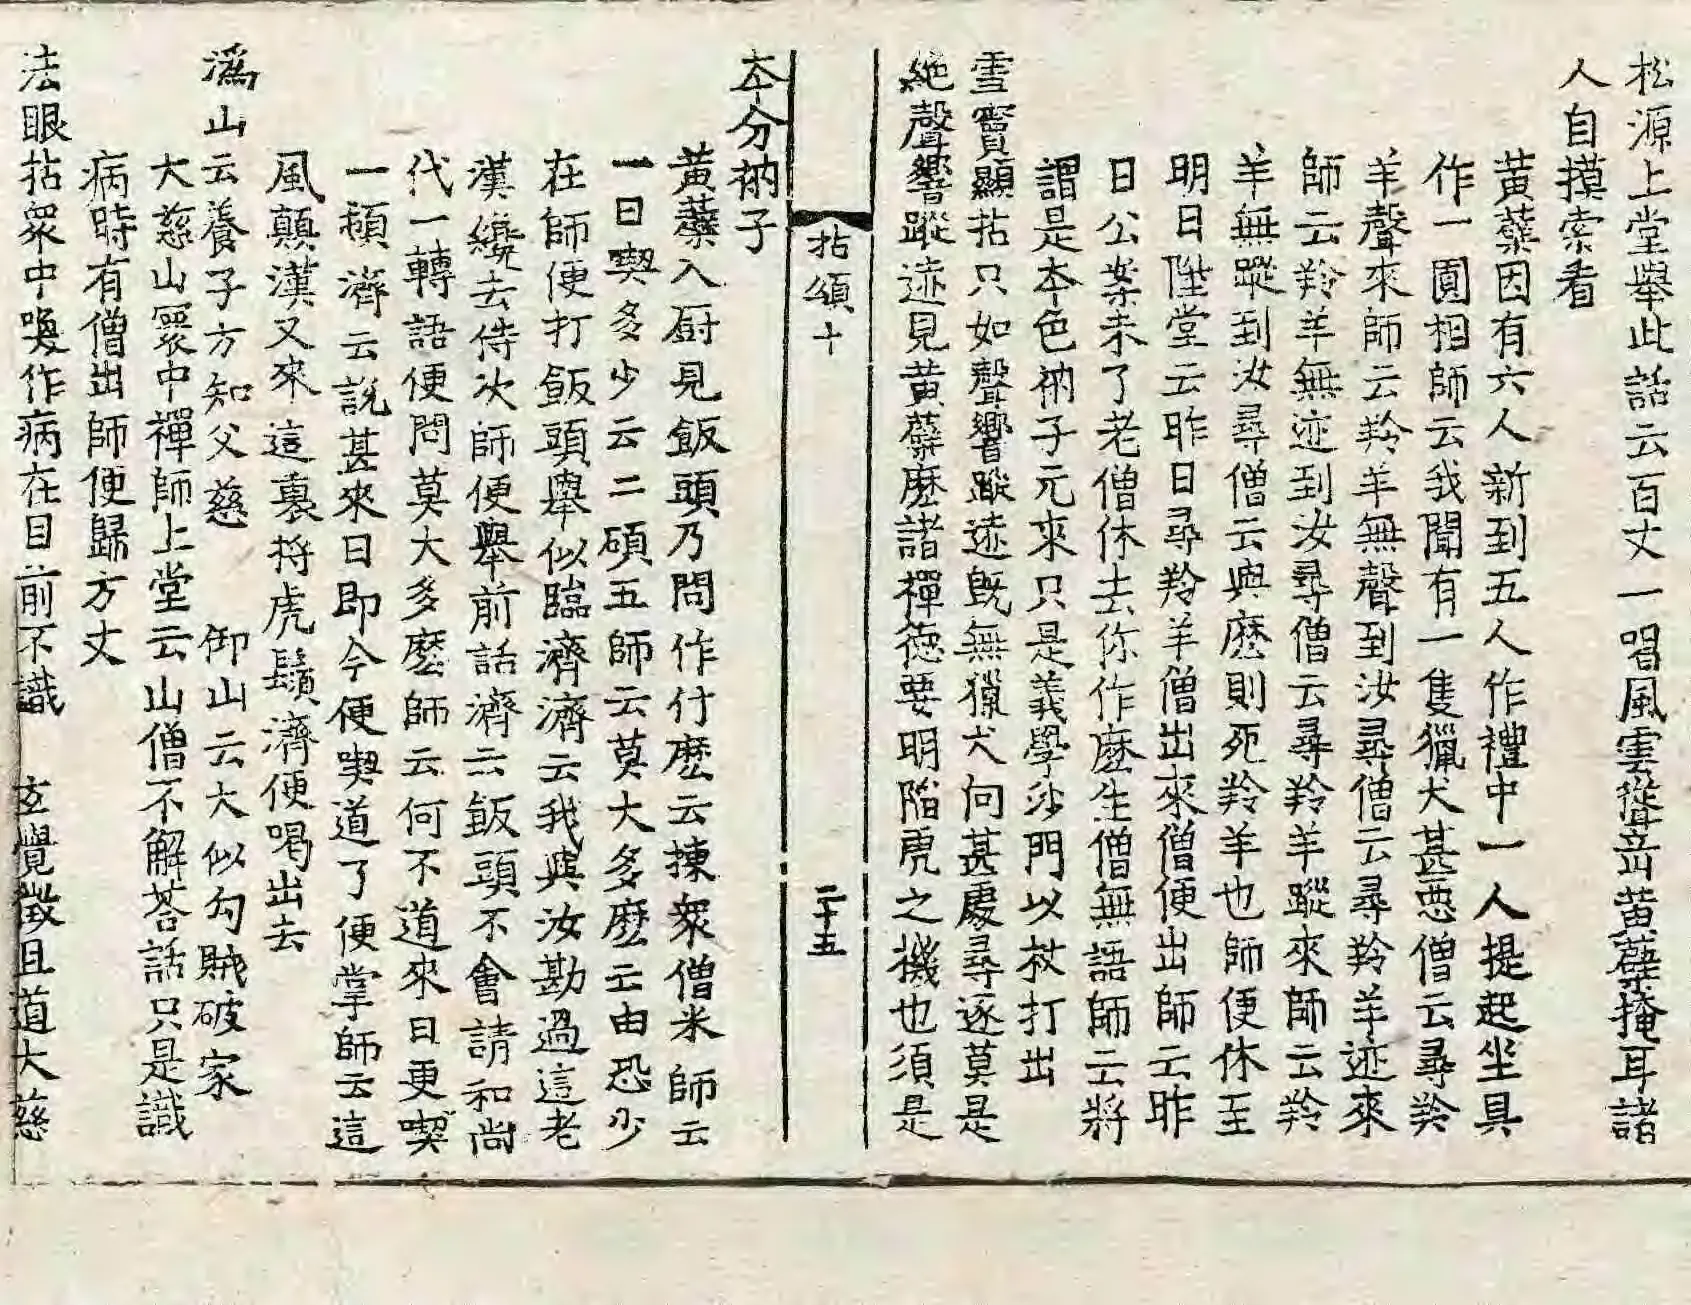 松源上堂舉此話云百丈一喝風雲聳㟁黃蘗掩耳諸
人自摸索看
黃蘗因有六人新到五人作禮中一人提起坐具
作一圓相師云我聞有一隻獵犬甚惡僧云尋羚
羊聲來師云羚羊無聲到汝尋僧云尋羚羊迹來
師云羚羊無迹到汝尋僧云尋羚羊蹤來師云羚
羊無蹤到汝尋僧云與麽則死羚羊也師便休至
明日陞堂云昨日尋羚羊僧出來僧便出師云昨
日公案未了老僧休去你作麽生僧無語師云將
謂是本色衲子元來只是義學沙門以杖打出
雪竇顯拈只如聲響蹤迹既無獵犬向甚處尋逐莫是
絕聲響蹤迹見黃蘗麽諸禪德要明陷虎之機也須是
拈頌十
二十五
本分衲子
黃蘗入厨見飯頭乃問作什麽云揀衆僧米師云
一日喫多少云二碩五師云莫大多麽云由恐少
在師便打飯頭舉似臨濟濟云我與汝勘過這老
漢纔去侍次師便舉前話濟云飯頭不會請和尚
代一轉語便問莫大多麽師云何不道來日更喫
一頓濟云說甚來日即今便喫道了便掌師云這
風顛漢又來這裏捋虎鬚濟便喝出去
潙山云養子方知父慈 仰山云大似勾賊破家
大慈山寰中禪師上堂云山僧不解荅話只是識
病時有僧出師便歸方丈
法眼拈衆中喚作病在目前不識 玄覺徵且道大慈